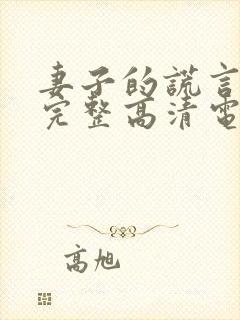 妻子的謊言
完整高清電
高旭